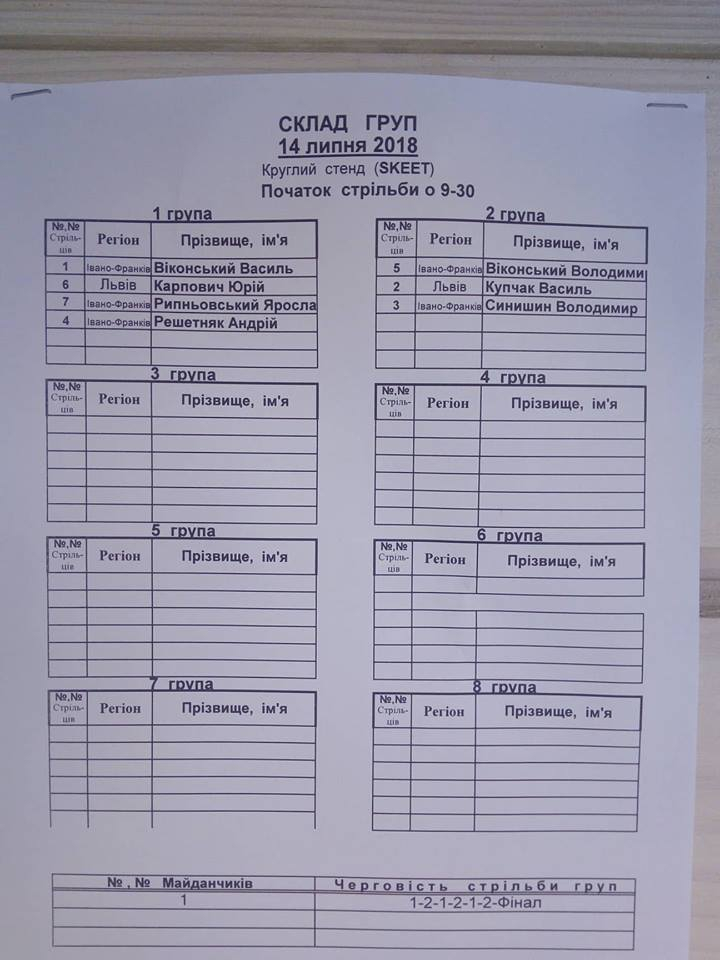 СКЛАД ГРУП
14 липня 2018
Круглий стенд (SKEET)
Початок стрільби о 9-30
1 група
№,№ Стріль-ців Регіон Прізвище, ім'я
1 Івано-Франків Віконський Василь
6 Львів Карпович Юрій
7 Івано-Франків Рипньовський Яросла
4 Івано-Франків Решетняк Андрій
2 група
№,№ Стріль-ців Регіон Прізвище, ім'я
5 Івано-Франків Віконський Володими
2 Львів Купчак Василь
3 Івано-Франків Синишин Володимир
3 група
№,№ Стріль-ців Регіон Прізвище, ім'я
4 група
№,№ Стріль-ців Регіон Прізвище, ім'я
5 група
№,№ Стріль-ців Регіон Прізвище, ім'я
6 група
№,№ Стріль-ців Регіон Прізвище, ім'я
7 група
№,№ Стріль-ців Регіон Прізвище, ім'я
8 група
№,№ Стріль-ців Регіон Прізвище, ім'я
№,№ Майданчиків Черговість стрільби груп
1 1-2-1-2-1-2-Фінал